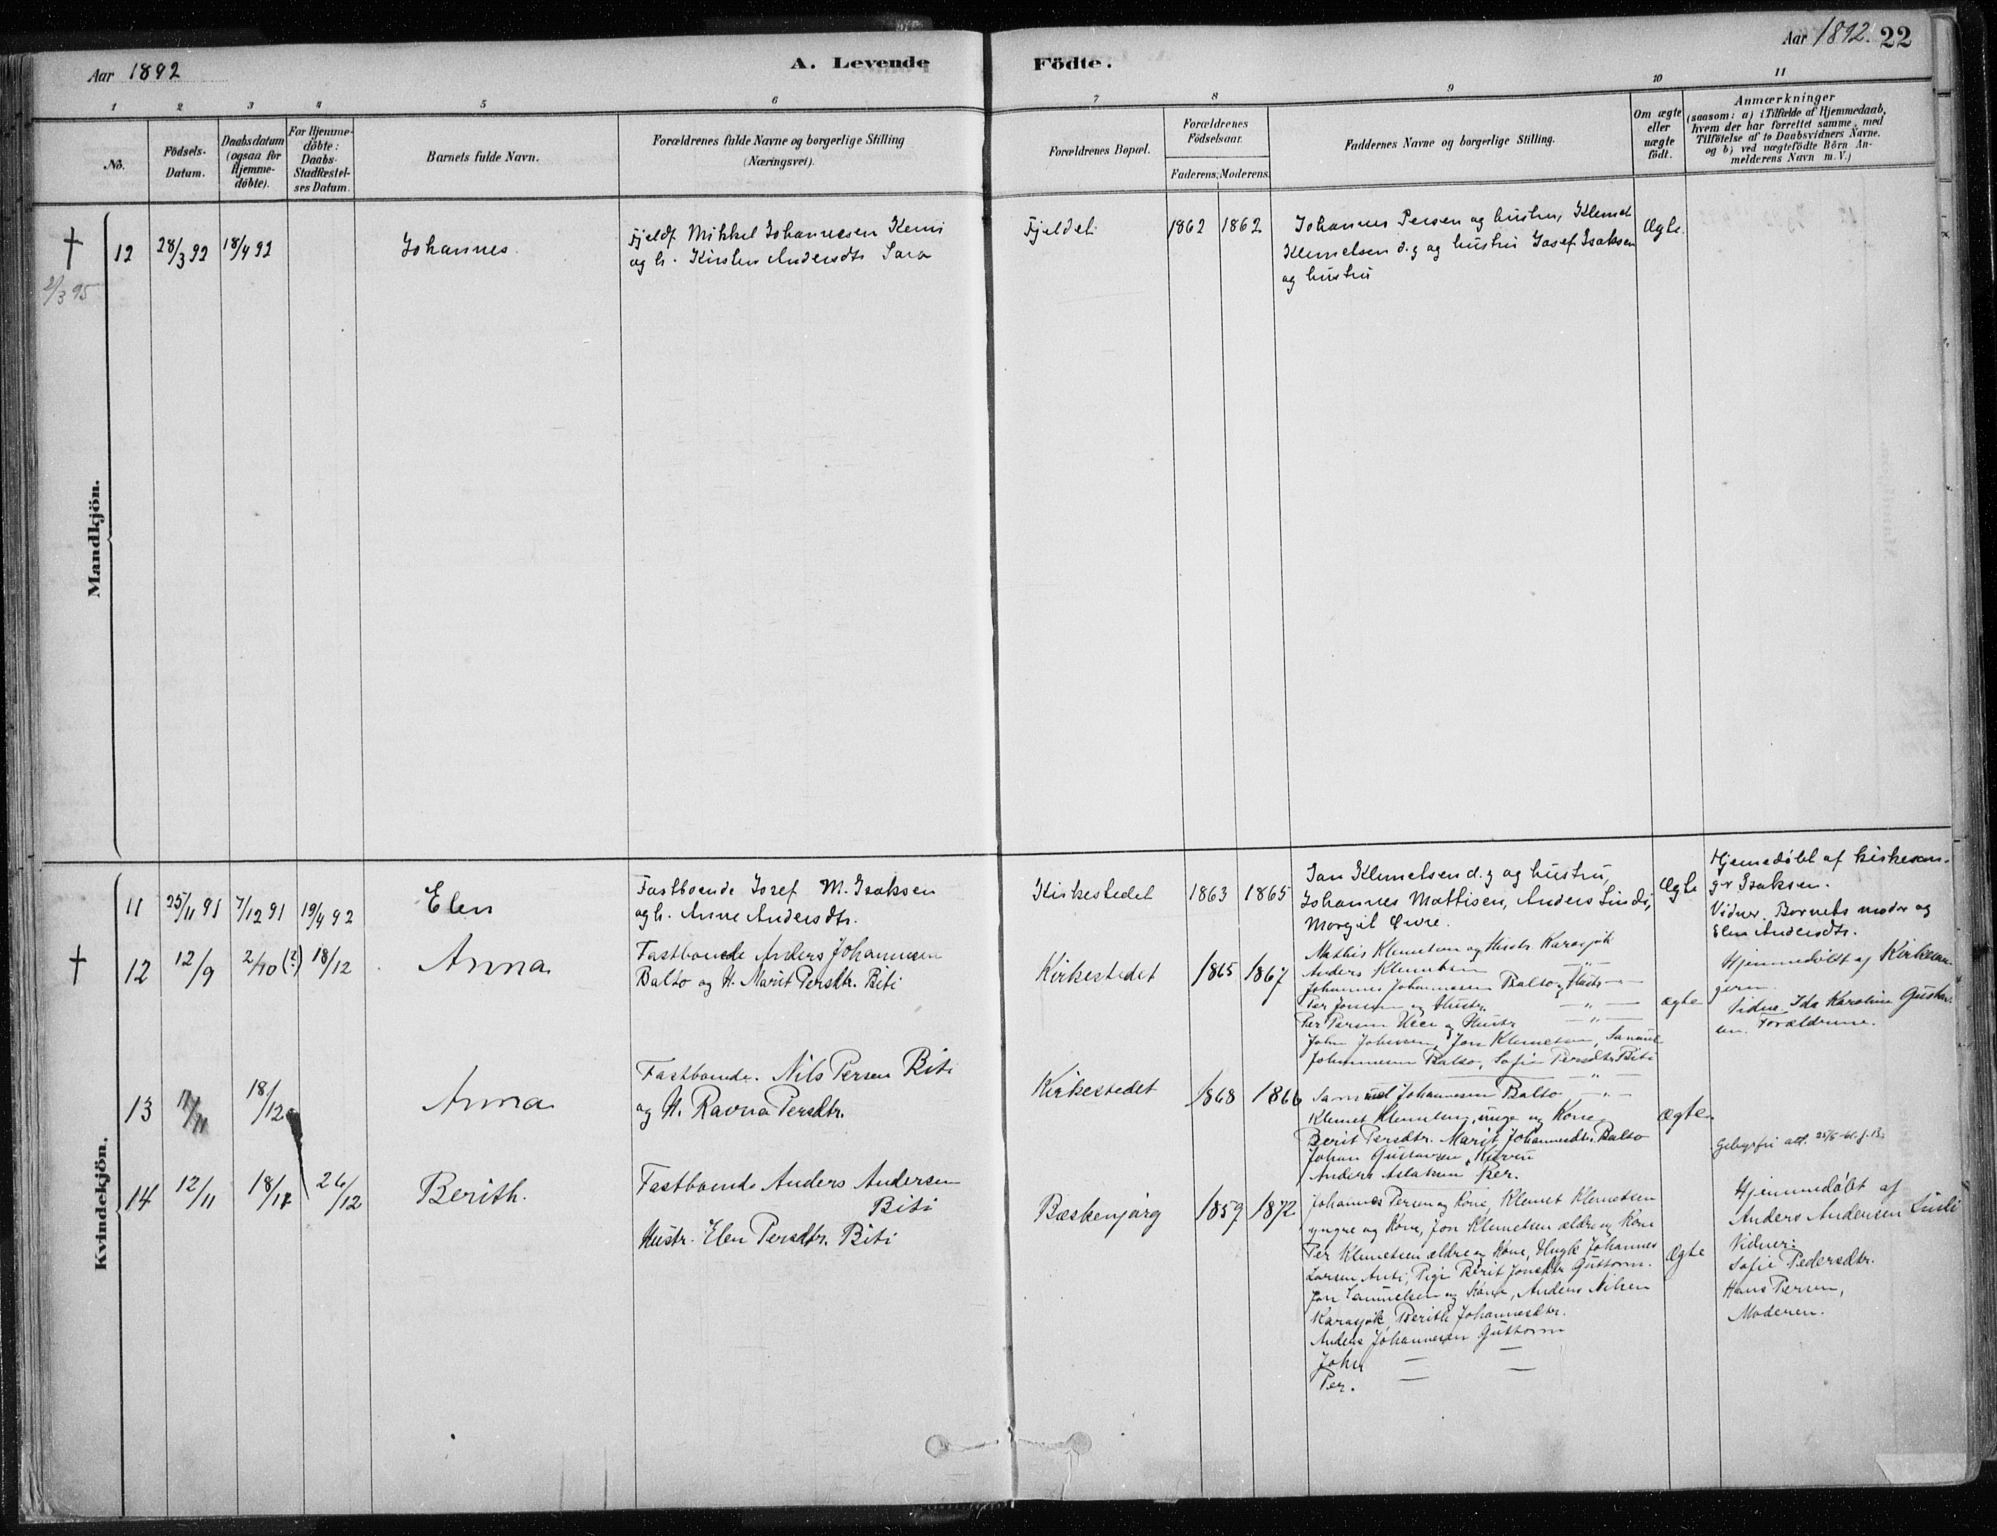 Aar 1892
A. Levende
Födte.
Aar 1892. 22
1 2 3 4 5 6 7 8 9 10 11
No.
Födsels-
Datum.
Daabsdatum
(ogsaa for
Hjemme-
döbte).
For Hjemme-
döbte:
Daabs-
Stadfæstel-
ses Datum.
Barnets fulde Navn.
Forældrenes fulde Navne og borgerlige Stilling
(Næringsvei).
Forældrenes Bopæl.
Forældrenes
Födselsaar.
Faderens. Moderens.
Faddernes Navne og borgerlige Stilling.
Om ægte
eller
uægte
födt.
Anmærkninger
(saasom: a) i Tilfælde af Hjemmedaab,
hvem der har forrettet samme, med
Tilföielse af to Daabsvidners Navne.
og b) ved uægtefödte Börn An-
melderens Navn m. V.)
Mandkjön.
†
2/3 95
12 28/3 92 18/4 92
Johannes.
Fjeldf. Mikkel Johannesen Kemi
og h. Kirsten Andersdtr Sara
Fjeldet
1862 1862
Johannes Persen og hustru, Klemet
Klemetsen d. y og hustru Josef Isaksen
og hustru
Ægte.
Kvindekjön.
11 25/11 91 7/12 91 19/4 92
Elen
Fastboende Josef M. Isaksen
og h. Anne Andersdtr.
Kirkestedet
1863 1865
Jon Klemetsen d. y og hustru,
Johannes Mattisen, Anders
Margit
Ægte
Hjemedöbt af kirkesan-
ger Isaksen.
Vidner. Barnets moder og
Elen Andersdtr.
†
12 12/9 2/10 (?) 18/12
Anna
Fastboende Anders Johannesen
Balto og H. Marit Persdtr. Biti
Kirkestedet
1865 1867
Mathis Klemetsen og Hustr Karasjok
Anders Klemetsen — " —
Johannes Johannesen Balto og Hustr — " —
Per Jonsen og Hustr. — " —
Per Persen og Hustr — " —
John Johnsen, Jon Klemetsen, Samuel
Johannesen Balto, Sofie Persdtr Biti
ægte
Hjemmedöbt af Kirkesan-
geren.
Vidne Ida Karoline Gustav-
sen. Forældrene.
13 11/11 18/12
Anna
Fastboende. Nils Persen Biti
og H. Ravna Persdtr.
Kirkestedet
1868 1866
Samuel Johannesen Balto — " —
Klemet Klemetsen, unge og Kone
Berit Persdtr. Marit Johannesdtr. Balto
Johan Gustavsen
Anders Aslaksen Per.
Ægte
14 12/11 18/12 26/12
Berith.
Fastboende Anders Andersen
Biti
Hustr. Elen Persdtr. Biti
Bæskenjarg
1859 1872
Johannes Persen og Kone, Klemet Klemetsen
yngre og Kone, Jon Klemetsen ældre og Kone
Per Klemetsen ældre og Kone, Ungk Johannes
Larsen Anti, Pige Berit Jonsdtr Guttorm.
Jon Samuelsen og Kone, Anders Nilsen
Karasjok, Berith Johannesdtr.
Anders Johannesen Guttorm
John — —
Per. — —
Ægte
Hjemmedöbt af
Anders Andersen
Vidner:
Sofie Pedersdtr.
Hans Persen,
Moderen.